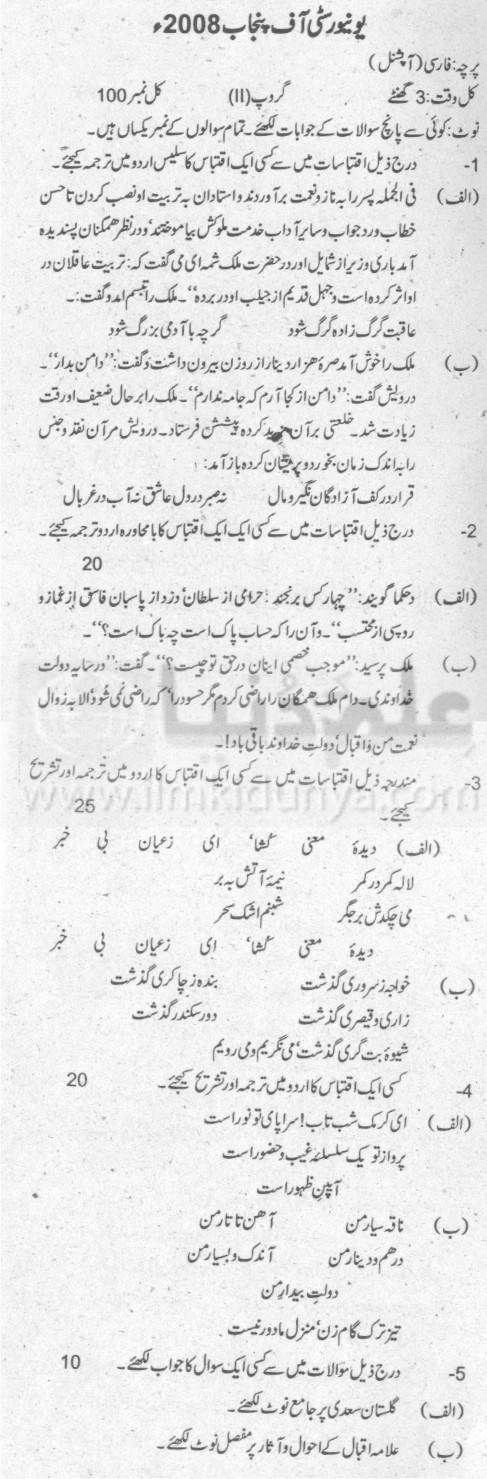 یونیورسٹی آف پنجاب 2008ء
پرچہ: فارسی (آپشنل)
کل وقت: 3 گھنٹے گروپ (II) کل نمبر 100
نوٹ: کوئی سے پانچ سوالات کے جوابات لکھئے۔ تمام سوالوں کے نمبر یکساں ہیں۔
1- درج ذیل اقتباسات میں سے کسی ایک اقتباس کا سلیس اردو میں ترجمہ کیجئے۔
(الف) فی الجملہ پسر را بہ ناز و نعمت بر آوردند و استادان بہ تربیت او نصب کردن تا حسن
خطاب ورد جواب و سایر آداب خدمت ملوکش بیاموختند' و در نظر ھمکنان پسندیدہ
آمد باری وزیر از شمایل او در حضرت ملک شمہ ای می گفت کہ: تربیت عاقلان در
او اثر کردہ است و جہل قدیم از جیلب او در بردہ"۔ ملک را تبسم امد و گفت:۔
عاقبت گرگ زادہ گرگ شود گرچہ با آدمی بزرگ شود
(ب) ملک را خوش آمد صرۂ ھزار دینار از روزن بیرون داشت و گفت: "دامن بدار"۔
درویش گفت: "دامن از کجا آرم کہ جامہ ندارم"۔ ملک را بر حال ضعیف او رقت
زیادت شد۔ خلعتی بر آن مزید کردہ پیشش فرستاد۔ درویش مر آن نقد و جنس
را بہ اندک زمان بخورد و پریشان کردہ باز آمد:
قرار در کف آزادگان نگیر و مال نہ صبر در دل عاشق نہ آب در غربال
2- درج ذیل اقتباسات میں سے کسی ایک ایک اقتباس کا با محاورہ اردو ترجمہ کیجئے۔
20
(الف) دحکما گویند: "چہار کس برنجند: حرامی از سلطان' دزد از پاسبان فاسق از غماز و
روسپی از محتسب"۔ و آن را کہ حساب پاک است چہ باک است؟"۔
(ب) ملک پرسید: "موجب خصمی اینان در حق تو چیست؟"۔ گفت: "در سایہ دولت
خداوندی۔ دام ملک ھمگان را راضی کردم مگر حسود را' کہ راضی نمی شود الا بہ زوال
نعمت من و اقبال' دولت خداوند باقی باد!۔
3- مندرجہ ذیل اقتباسات میں سے کسی ایک اقتباس کا اردو میں ترجمہ اور تشریح
کیجئے۔ 25
(الف) دیدۂ معنی کشا' ای زعیان بی خبر
لالہ کمر در کمر نیمۂ آتش بہ بر
می چکدش بر جگر شبنم اشک سحر
دیدۂ معنی کشا' ای زعیان بی خبر
(ب) خواجہ ز سروری گذشت بندہ ز چاکری گذشت
زاری و قیصری گذشت دور سکندر گذشت
شیوۂ بت گری گذشت' می نگریم و می رویم
4- کسی ایک اقتباس کا اردو میں ترجمہ اور تشریح کیجئے۔ 20
(الف) ای کرمک شب تاب! سراپای تو نور است
پرواز تو یک سلسلۂ غیب و حضور است
آیین ظہور است
(ب) ناقہ سیار من آھن تاتار من
درھم و دینار من آندک و بسیار من
دولت بیدار من
تیز ترک گام زن' منزل ما دور نیست
5- درج ذیل سوالات میں سے کسی ایک سوال کا جواب لکھئے۔ 10
(الف) گلستان سعدی پر جامع نوٹ لکھئے۔
(ب) علامہ اقبال کے احوال و آثار پر مفصل نوٹ لکھئے۔
علم کی دنیا
www.ilmkidunya.com